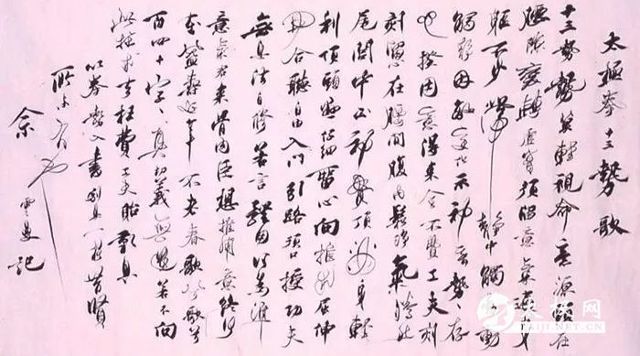 太極拳十三勢歌
十三勢勢莫輕視命意源頭在
腰隙變轉虛實須留意氣
軀不少滯靜中觸動動
因敵變化示神奇勢存
心揆用意得來全不費工夫刻
刻留在腰間腹內鬆淨氣騰然
尾閭中正神貫頂滿身輕
利頂頭懸仔細留心向推求屈伸
開合聽自由入門引路須口授功夫
無息法自修若言體用何為準
意氣君來骨肉臣想推用意終何
在益壽延年不老春歌兮歌兮
百四十字字真切義無遺若不向
此推求去枉費工夫貽歎息
以拳書
余記
太极网
TAIJI.NET.CN